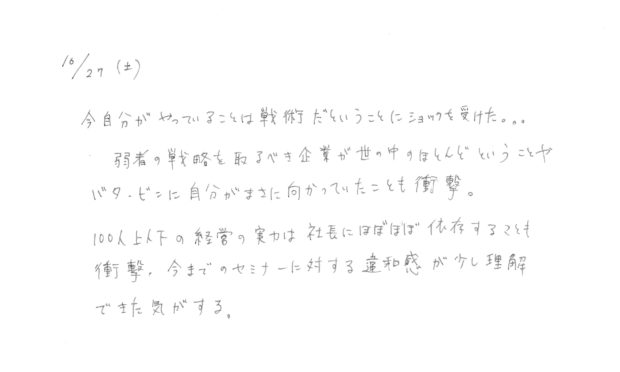 10/27 (土)
今自分がやっていることは戦術だということにショックを受けた。。。
弱者の戦略を取るべき企業が世の中のほとんどということや
バタ・ビンに自分がまさに向かっていたことも衝撃。
100人以下の経営の実力は社長にほぼほぼ依存することも
衝撃。今までのセミナーに対する違和感が少し理解
できた気がする。